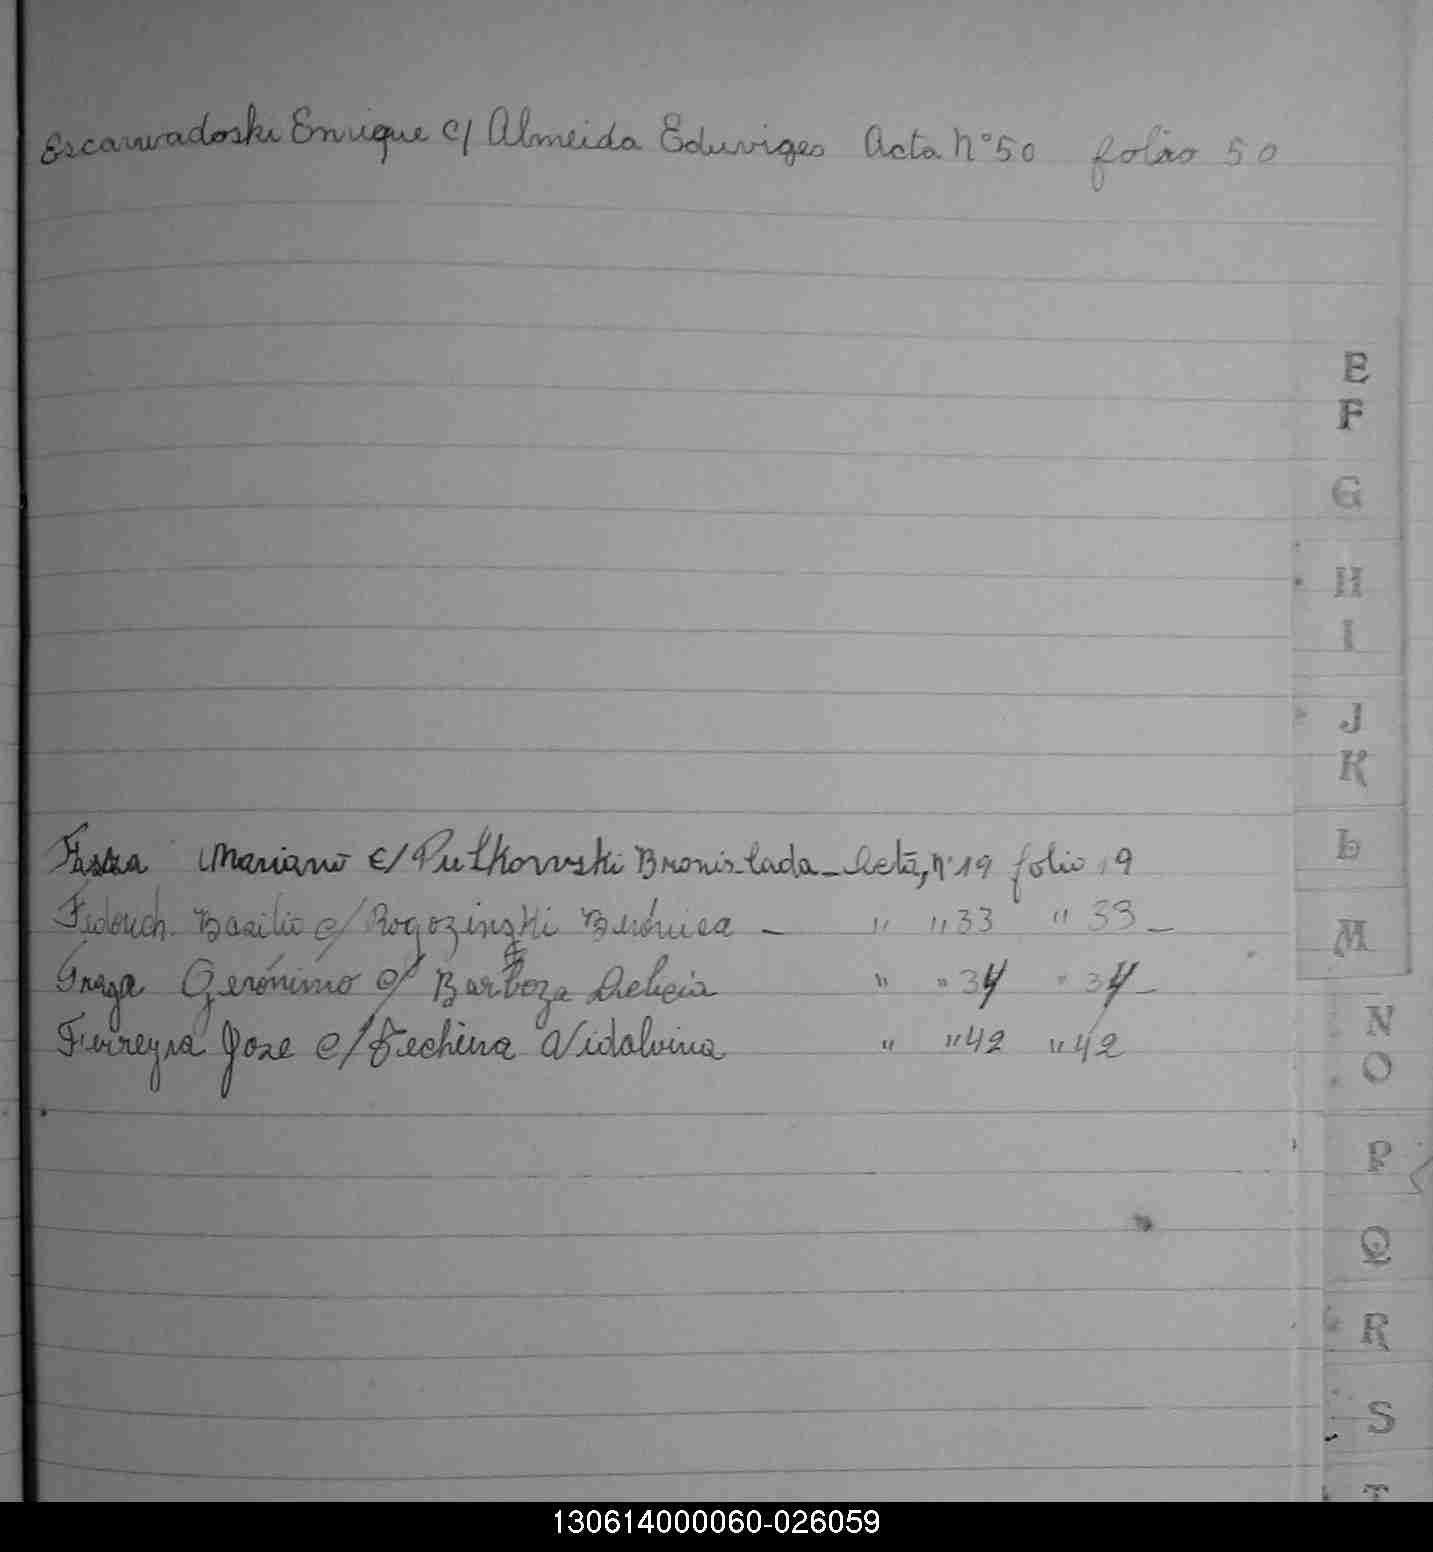 Escarwadoski Enrique c/ Almeida Eduviges Acta Nº 50 folio 50
E
F
G
H
I
J
K
L
M
Mariano c/ Putkowski Bronislada - Acta, Nº 19 folio 19
Fedouch. Basilio c/ Rogozinski Berónica - " " 33 " 33 -
Fraga Gerónimo c/ Barboza Delicia " " 34 " 34 -
Ferreyra Jose c/ Techera Vidalvina " " 42 " 42
N
O
P
Q
R
S
130614000060-026059